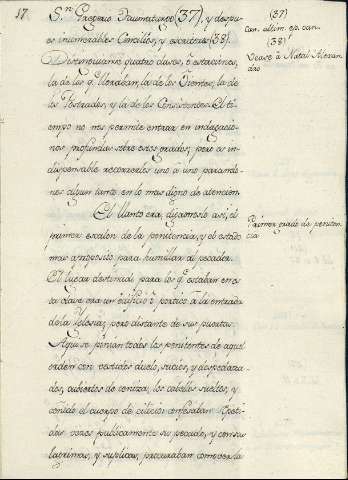 17.
Sn. Gregorio Taumaturgo (37), y despu-
es innumerables Concilios, y escritores (38).
Distinguianse quatro clases, o estaciones,
la de los qe. lloraban, la de los Oientes, la de
los Postrados, y la de los Consistentes. El ti-
empo no nos permite entrar en indagacio-
nes profundas sobre estos grados; pero es in-
dispensable recorrerlos uno à uno parando-
nos algun tanto en lo mas digno de atencion.
El llanto era, digamoslo asi, el
primer escalon de la penitencia, y el estado
mas aproposito para humillar al pecador.
El lugar destinado para los qe. estaban en es-
ta clase era un edificio ò portico à la entrada
de la Iglesia; pero distante de sus puertas.
Aqui se ponian todos los penitentes de aquel
orden con vestidos de duelo, sucios, y despedaza-
dos, cubiertos de ceniza, los cabellos sueltos, y
ceñido el cuerpo de cilicio: confesaban repeti-
das veces publicamente su pecado, y con sus
lagrimas, y suplicas, procuraban conmover la
(37)
Can. ultim. ep. can.
(38)
Vease à Natal Alexan-
dro
Primer grado de peniten-
cia